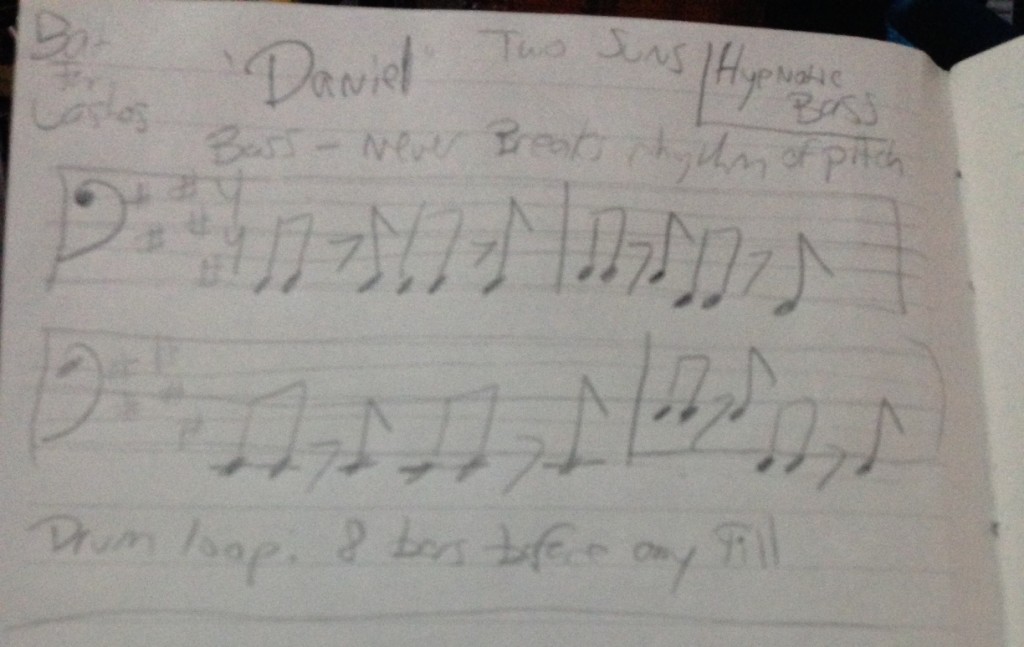 Bat
For
Lashes
"Daniel"
Two Suns
Hypnotic
Bass
Bass - Never Breaks rhythm of pitch
4
4
Drum loop. 8 bars before any Fill